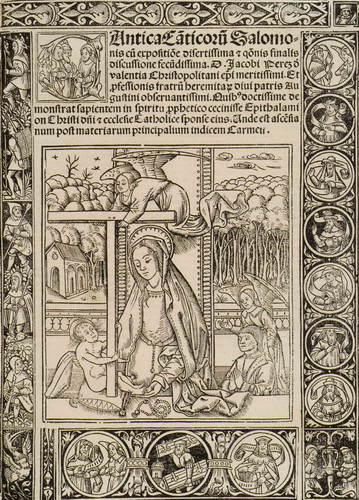 Antica Cãticorũ Salomo-
nis cũ expositiõe disertissima ⁊ q̃onis finalis
discussione fecũdissima. D. Jacobi Perez ð
valentia Christopolitani ep̃i meritissimi. Et
ꝓfessionis fratrũ heremitaꝝ diui patris Au
gustini obseruantissimi. Quibꝰ doctissime de
monstrat sapientem in spiritu ꝓphetico cecinisse Epithalami
on Christi dñi ⁊ ecclesie Catholice sponse eius. Unde est ascẽta
num post materiarum principalium indicem Carmen.